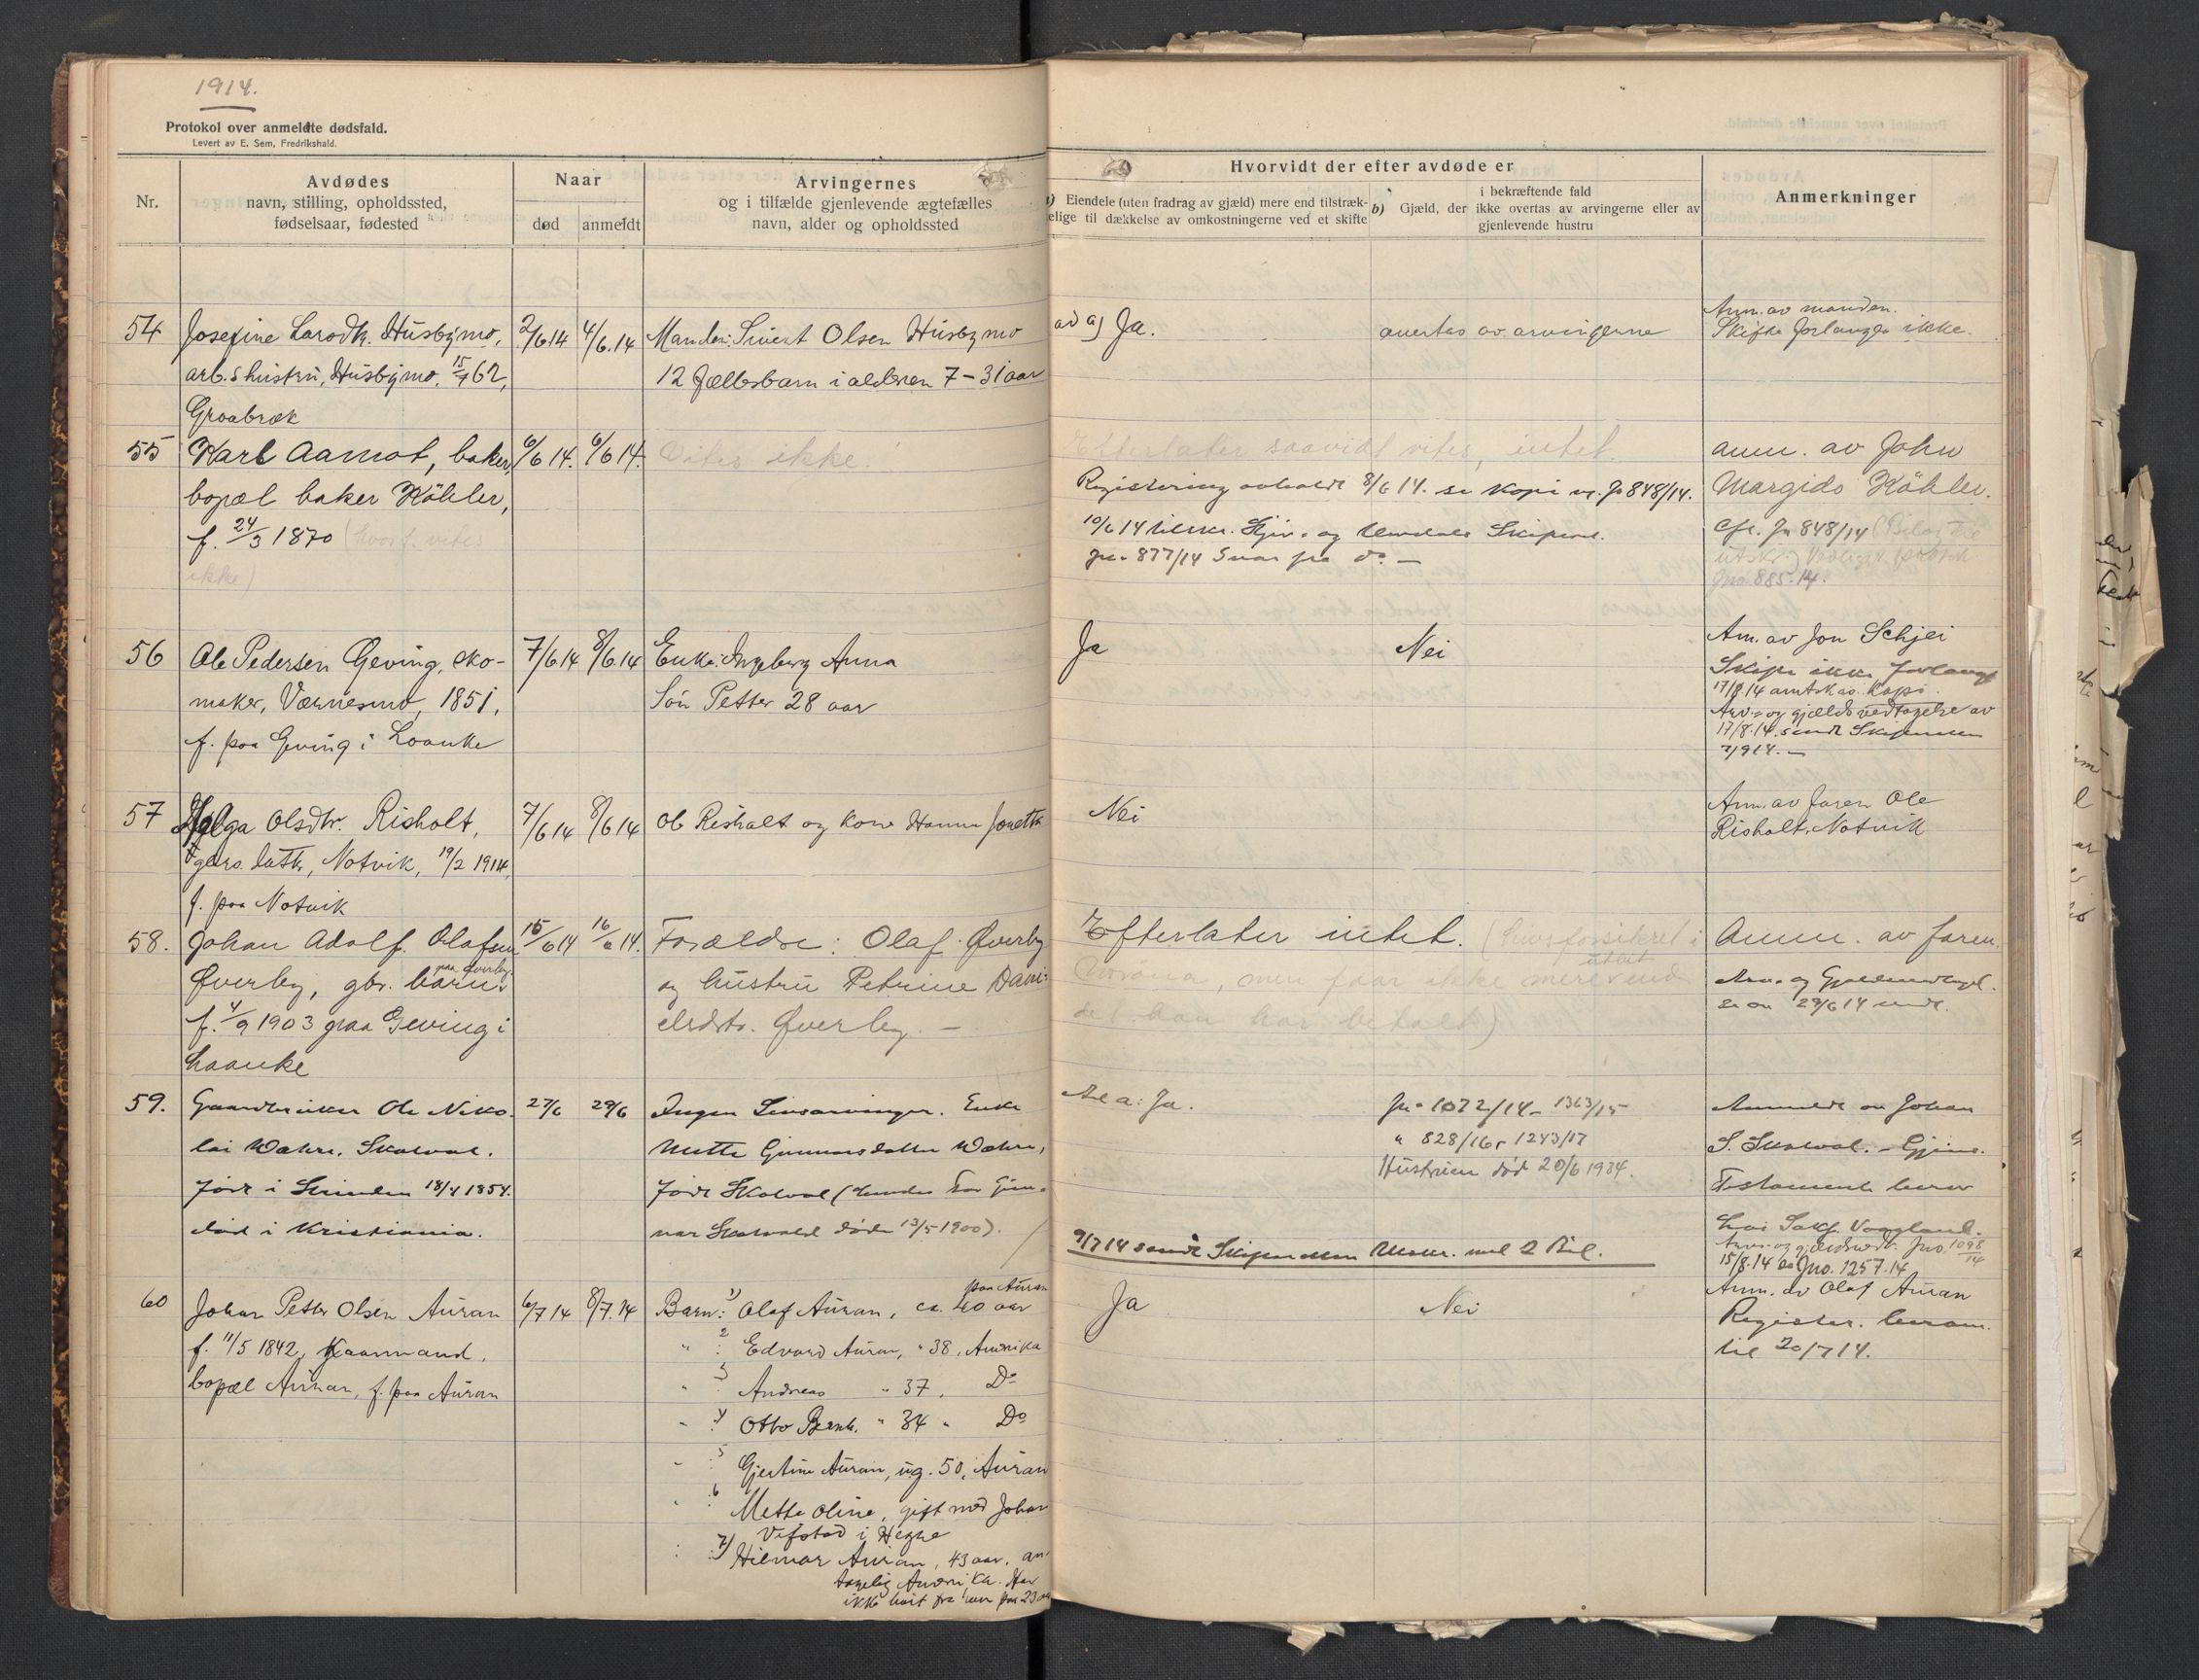 1914.
Protokol over anmeldte dødsfald.
Levert av E. Sem, Fredrikshald.
Nr.
Avdødes
navn, stilling, opholdssted,
fødselsaar, fødested
Naar
død
anmeldt
Arvingernes
og i tilfælde gjenlevende ægtefælles
navn, alder og opholdssted
Hvorvidt der efter avdøde er
a) Eiendele (uten fradrag av gjæld) mere end tilstræk-
kelige til dækkelse av omkostningerne ved et skifte
b) Gjæld, der
i bekræftende fald
ikke overtas av arvingerne eller av
gjenlevende hustru
Anmerkninger
54
Josefine Larsdtr. Husbymo,
arb.s hustru, Husbymo, 15/7 62,
Graabræk
2/6 14
4/6.14
Manden: Sivert Olsen Husbymo
12 fællesbarn i alderen 7-31 aar
ad a) Ja.
overtas av arvingerne
Anm. av manden.
Skifte forlanges ikke.
55
Karl Aamot, baker,
bopæl baker Köhler,
f. 24/3 1870 (hvor f. vites
ikke)
6/6 14.
6/6 14.
Vites ikke.
Efterlater saavidt vites, intet.
Registrering avholdt 8/6 14. se Kopi nr. Jr 848/14.
10/6 14 tilskr. Hjer- og Skifter.
Jr. 877/14 Svar fra do. —
anm. av John
Margido Köhler.
Cfr. Jr 848/14
Jno 885-14.
56
Ole Pedersen Geving, sko-
maker, Værnesmo, 1851,
f. paa Geving i Laanke
7/6 14
8/6.14
Enke: Ingeborg Anna
Søn Petter 28 aar
Ja
Nei
Am. av Jon Schjei
Skifte ikke forlangt
17/8.14 Kopi.
Arv.- og gjældsvedtagelse av
17/8.14. sendt
57
Helga Olsdtr. Risholt,
gbrs. datter, Notvik, 19/2 1914,
f. paa Notvik
7/6 14
8/6 14
Ole Risholt og kone Hanna Jonette
Nei
Anm. av faren Ole
Risholt, Notvik
58.
Johan Adolf Olafsen
Øverby, gbr. barn paa Øverby.
f. 4/9 1903 paa Geving i
Laanke
15/6 14
16/6 14.
Forældre: Olaf Øverby
og hustru Petrine Dani-
elsdtr. Øverby. —
Efterlater intet. (Livsforsikret i
, men faar ikke mere utbet. end
det han har betalt)
Anm. av faren.
Arv. og Gjældsvedtagel-
se av 29/6 14 sendt.
59.
Gaardbruker Ole Niko-
lai Wæhre, Skatval.
Født i 18/4 1854.
død i Kristiania.
27/6
29/6
Ingen Livsarvinger. Enke
Mette Gunnarsdatter Wæhre,
født Skatval (hendes Far Gun-
nar Skatvold døde 13/5 1900).
Ad a: Ja.
Jr. 1072/14 - 1363/15
" 828/16, 1243/17
Hustruen død 20/6 1934.
9/7 14 sendt Skifteretten med 2 Bil.
Anmeldt av Johan
S. Skatval.
Testamente beror
hos Sakf. Vogeland.
Arvs- og gjældsvedt. Jno. 1098/14
15/8.14 Jno. 1257.14
60
Johan Petter Olsen Auran
f. 11/5 1842, Kaarmand,
bopæl Auran, f. paa Auran
6/7 14
8/7.14
Barn: 1) Olaf Auran, ca. 40 aar paa Auran
" 2 Edvard Auran, " 38, Amerika
" 3 Andreas " 37, Do
" 4 Otto Bernh. " 34 " Do
" 5 Gjertine Auran, ug. 50, Auran
" 6 Mette Oline, gift med Johan
Vifstad i Hegre
7) Hilmar Auran, 43 aar, an-
tagelig Amerika. Har
ikke hørt fra ham paa 23 aar
Ja
Nei
Anm. av Olaf Auran
Register. beram.
til 20/7 14.